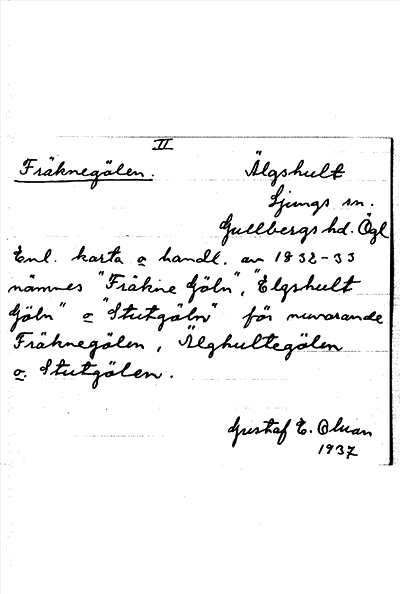 II
Fräknegölen. Älgshult
Ljungs sn.
Gullbergs hd. Ögl
Enl. karta o handl. av 1832-33
nämnes "Fräkne Göln", "Elgshult
Göln" o "Stutgöln" för nuvarande
Fräknegölen, Älghultegölen
o. Stutgölen.
Gustaf E. Olsson
1937